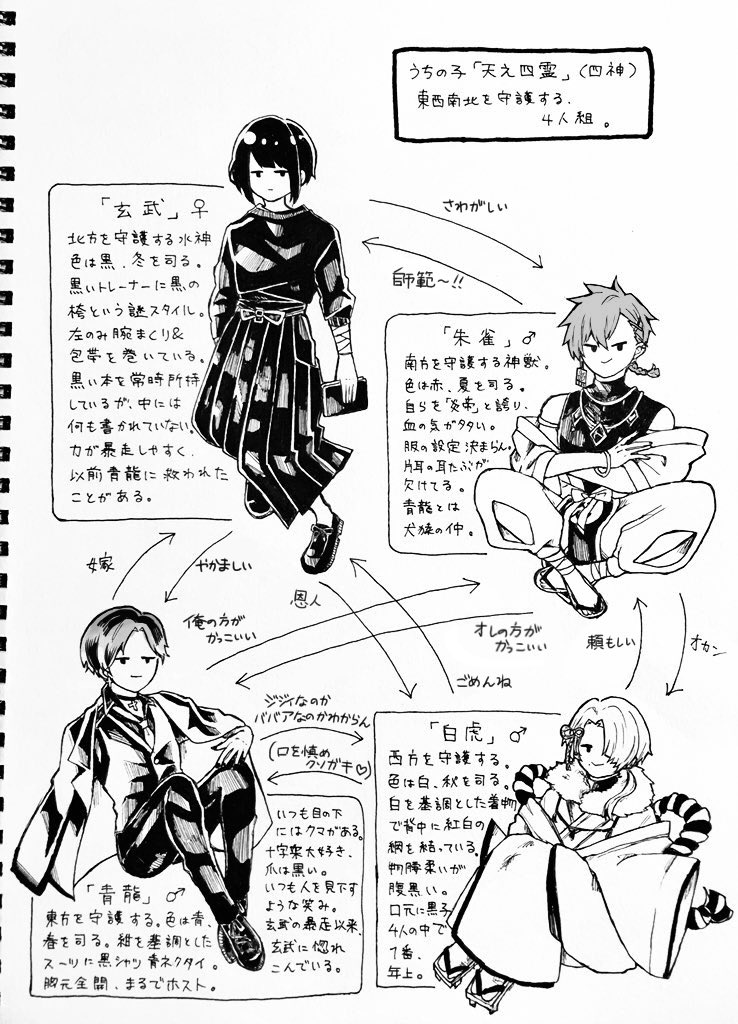 うちの子「天之四霊」(四神)
東西南北を守護する、
4人組。
「玄武」♀
北方を守護する水神
色は黒、冬を司る。
黒いトレーナーに黒の
袴という謎スタイル。
左のみ腕まくり&
包帯を巻いている。
黒い本を常時所持
しているが、中には
何も書かれていない。
力が暴走しやすく、
以前青龍に救われた
ことがある。
さわがしい
師範〜!!
「朱雀」♂
南方を守護する神獣。
色は赤、夏を司る。
自らを「炎帝」と謳り、
血の気がタタい。
服の設定決まらん。
片耳の耳たぶが
欠けてる。
青龍とは
犬猿の仲。
嫁
やかましい
恩人
ごめんね
俺の方が
かっこいい
オレの方が
かっこいい
頼もしい
オカン
ジジイなのか
ババアなのかわからん
(口を慎め
クソガキ♡)
「青龍」♂
東方を守護する。色は青、
春を司る。紺を基調とした
スーツに黒シャツ青ネクタイ。
胸元全開、まるでホスト。
いつも目の下
にはクマがある。
十字架大好き、
爪は黒い。
いつも人を見下す
ような笑み。
玄武の暴走以来、
玄武に惚れ
こんでいる。
「白虎」♂
西方を守護する。
色は白、秋を司る。
白を基調とした着物
で背中に紅白の
綱を結っている。
物腰柔いが
腹黒い。
口元に黒子
4人の中で
1番、
年上。